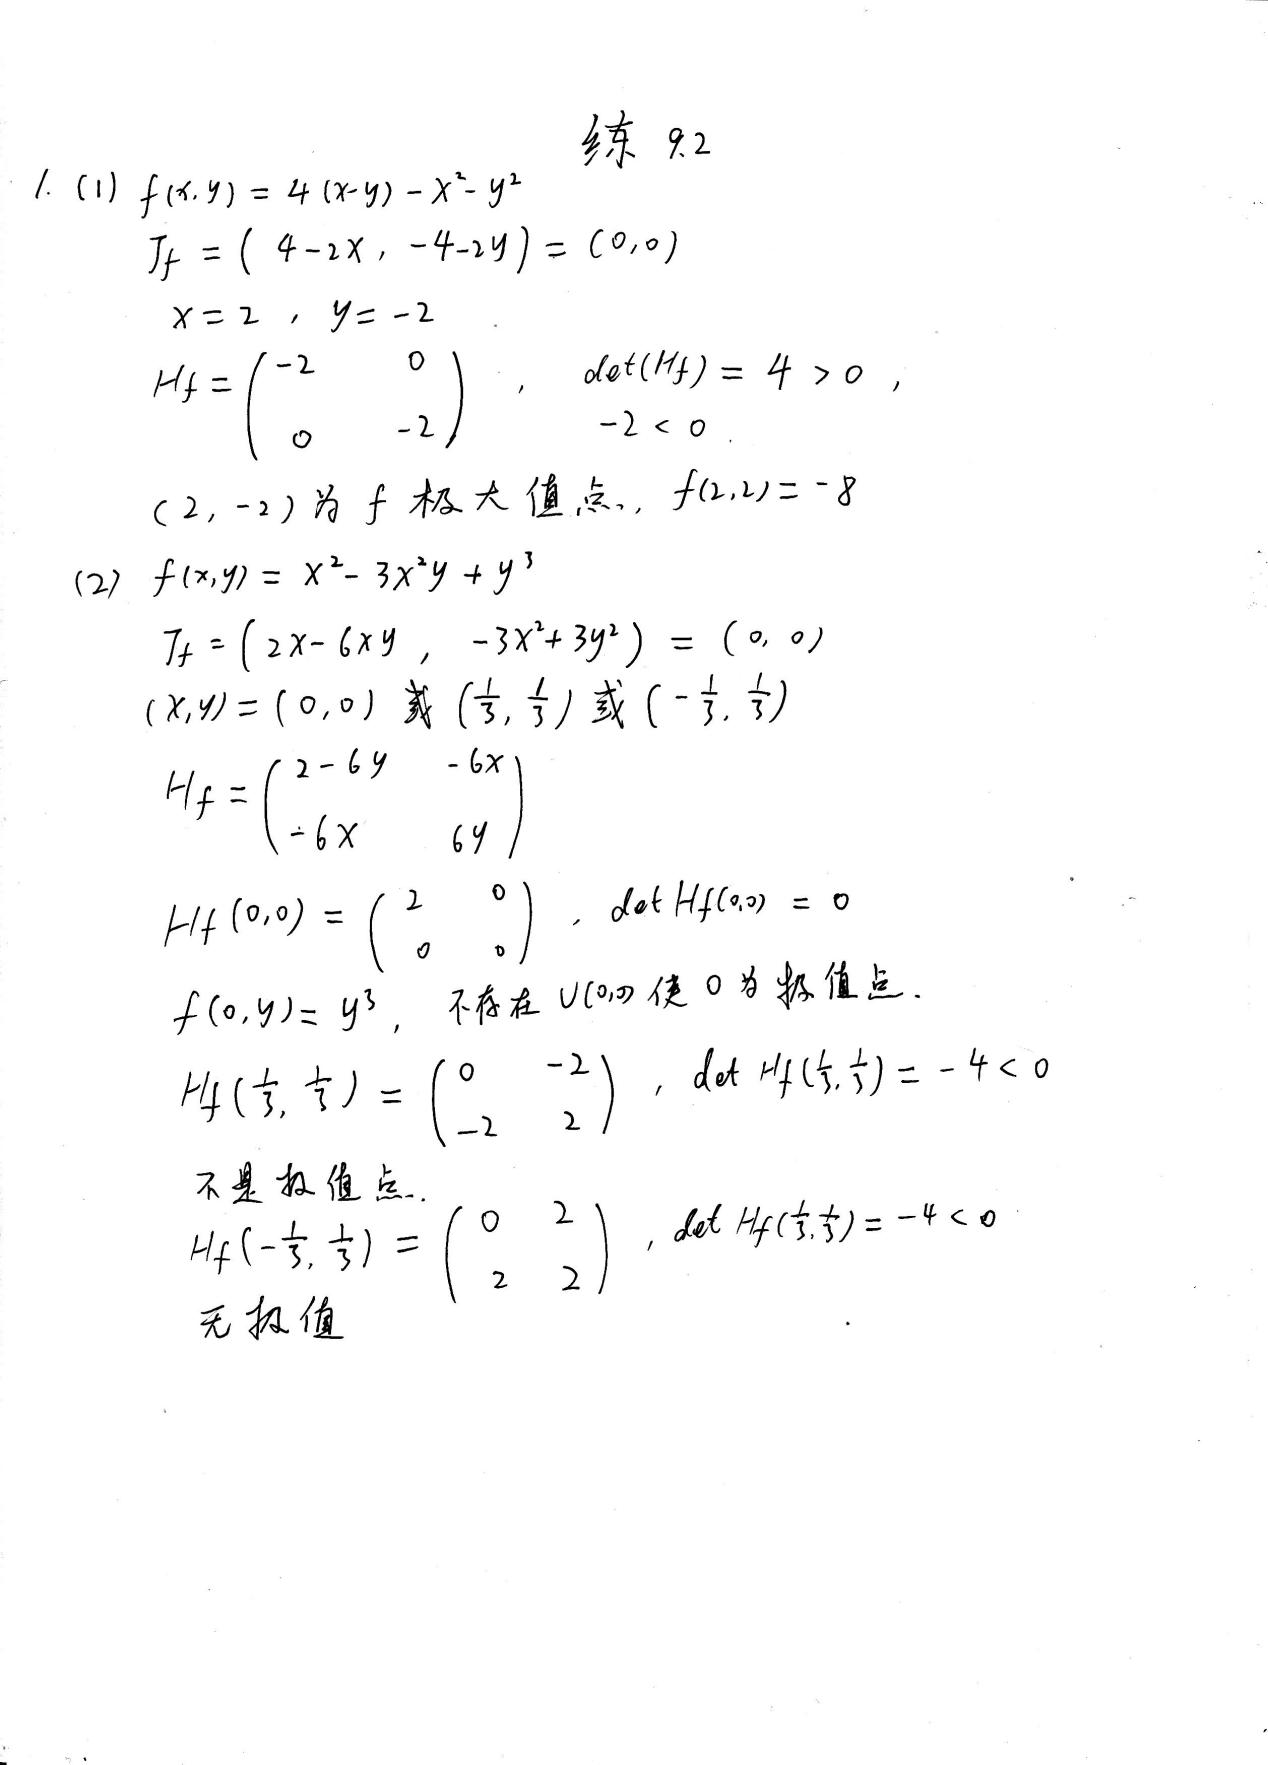 练 9.2
1. (1) f(x,y) = 4(x-y) - x² - y²
Jf = ( 4-2x, -4-2y ) = (0,0)
x = 2 , y = -2
Hf = ( -2 0 0 -2 ) , det(Hf) = 4 > 0 ,
-2 < 0 .
(2, -2) 为 f 极大值点., f(2,2) = -8
(2) f(x,y) = x² - 3x²y + y³
Jf = ( 2x-6xy , -3x²+3y² ) = (0, 0)
(x,y) = (0,0) 或 (1/3, 1/3) 或 (-1/3, 1/3)
Hf = ( 2-6y -6x -6x 6y )
Hf(0,0) = ( 2 0 0 0 ) , det Hf(0,0) = 0
f(0,y) = y³ , 不存在 U(0,0) 使 0 为极值点.
Hf(1/3, 1/3) = ( 0 -2 -2 2 ) , det Hf(1/3, 1/3) = -4 < 0
不是极值点.
Hf(-1/3, 1/3) = ( 0 2 2 2 ) , det Hf(1/3, 1/3) = -4 < 0
无极值